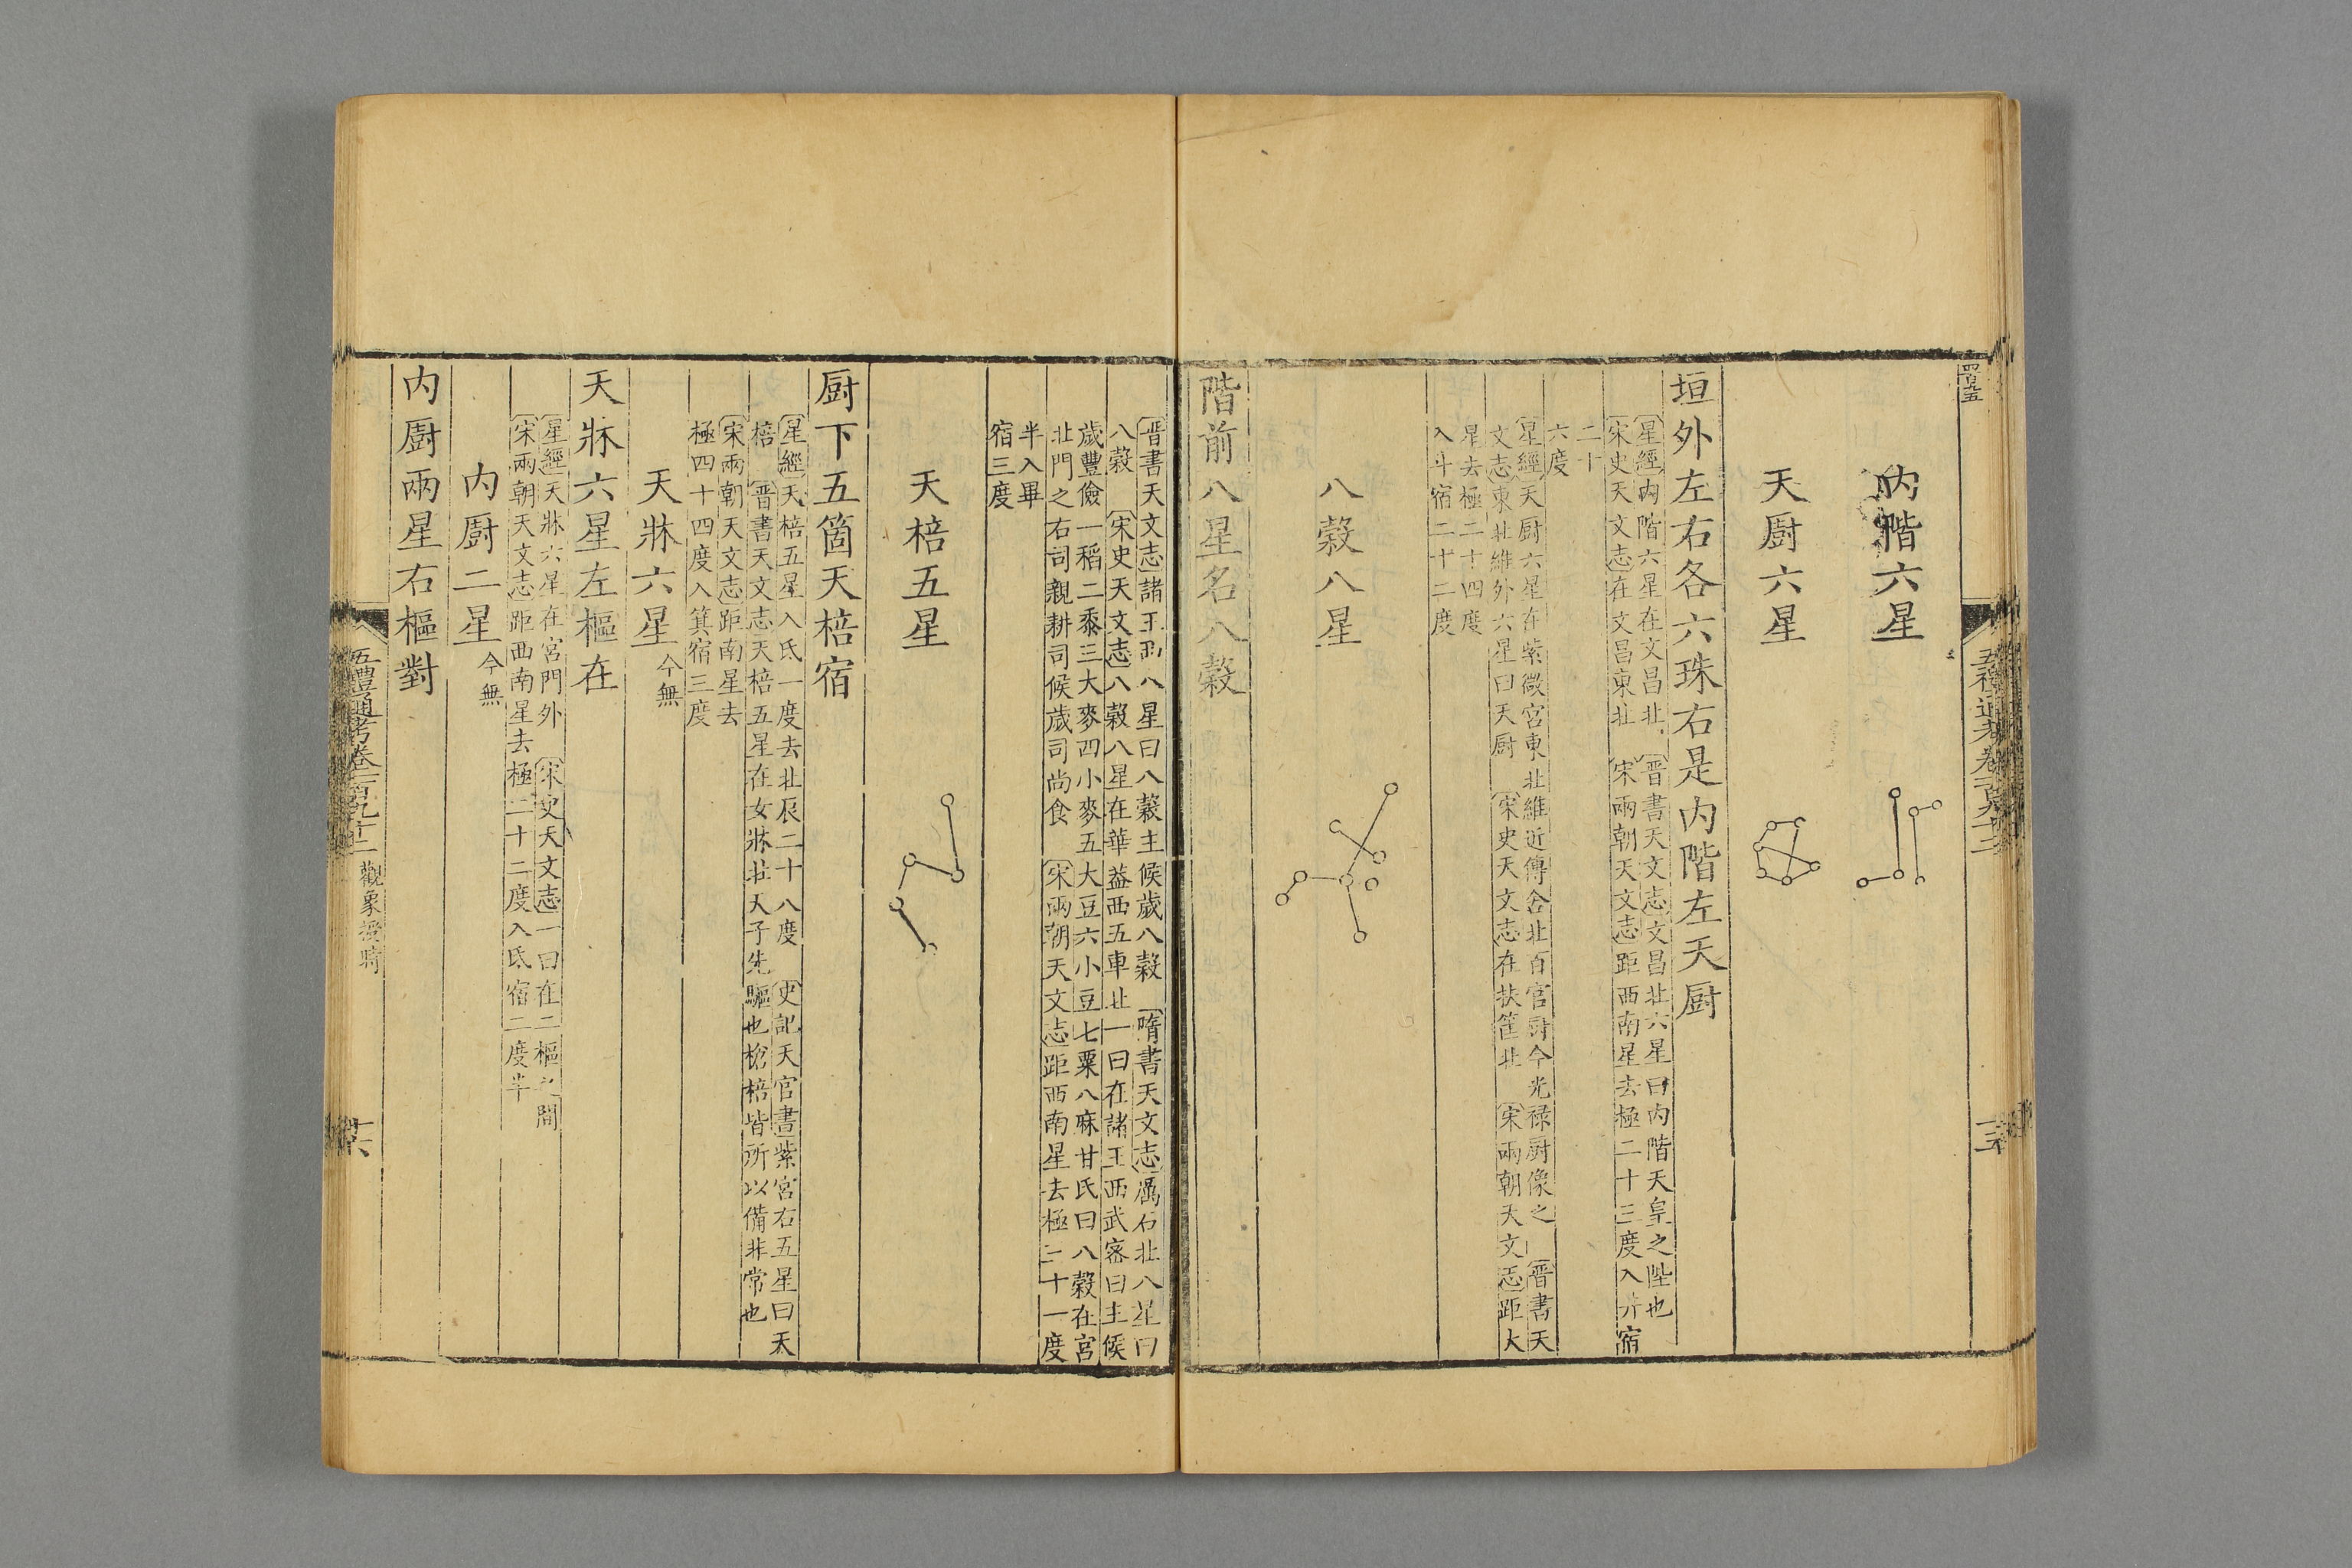 內階六星
天厨六星
垣外左右各六珠右是内階左天厨
星經内階六星在文昌北 晋書天文志文昌北六星曰内階天皇之陛也
宋史天文志在文昌東北 宋兩朝天文志距西南星去極二十三度入井宿
二十
六度
星經天厨六星在紫微宫東北維近傳舍北百官厨今光禄厨像之 晋書天
文志東北維外六星曰天厨 宋史天文志在扶筐北 宋兩朝天文志距大
星去極二十四度
入斗宿二十二度
八榖八星
階前八星名八榖
晋書天文志諸王西八星曰八榖主候歲八榖 隋書天文志厲石北八星曰
八榖 宋史天文志八榖八星在華葢西五車北一曰在諸王西武密曰主候
歲豐儉一稻二黍三大麥四小麥五大豆六小豆七粟八麻甘氏曰八榖在宫
北門之右司親耕司候歲司尚食 宋兩朝天文志距西南星去極二十一度
半入畢
宿三度
天棓五星
厨下五箇天棓宿
星經天棓五星入氐一度去北辰二十八度 史記天官書紫宫右五星曰天
棓 晋書天文志天棓五星在女牀北天子先驅也槍棓皆所以備非常也
宋兩朝天文志距南星去
極四十四度入箕宿三度
天牀六星 今無
天牀六星左樞在
星經天牀六星在宫門外 宋史天文志一曰在二樞之間
宋兩朝天文志距西南星去極二十二度入氐宿二度半
内厨二星 今無
内厨兩星右樞對
五禮通考卷一百九十二 觀象授時
十六